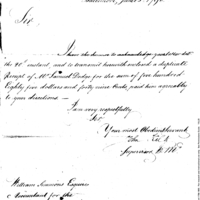 Sir
I have the honour to acknowledge your letter of
the 20th instant, and to transmit herewith enclosed a duplicate
Receipt of Mr Samuel Dodge for the sum of five hundred
Eighty five dollars and forty nine Cents, paid him agreeably
to your directions.—
I am very respectfully
Sir
Your most Obedient Servant
Supervisor
William Simmons Esquire
Accountant for the